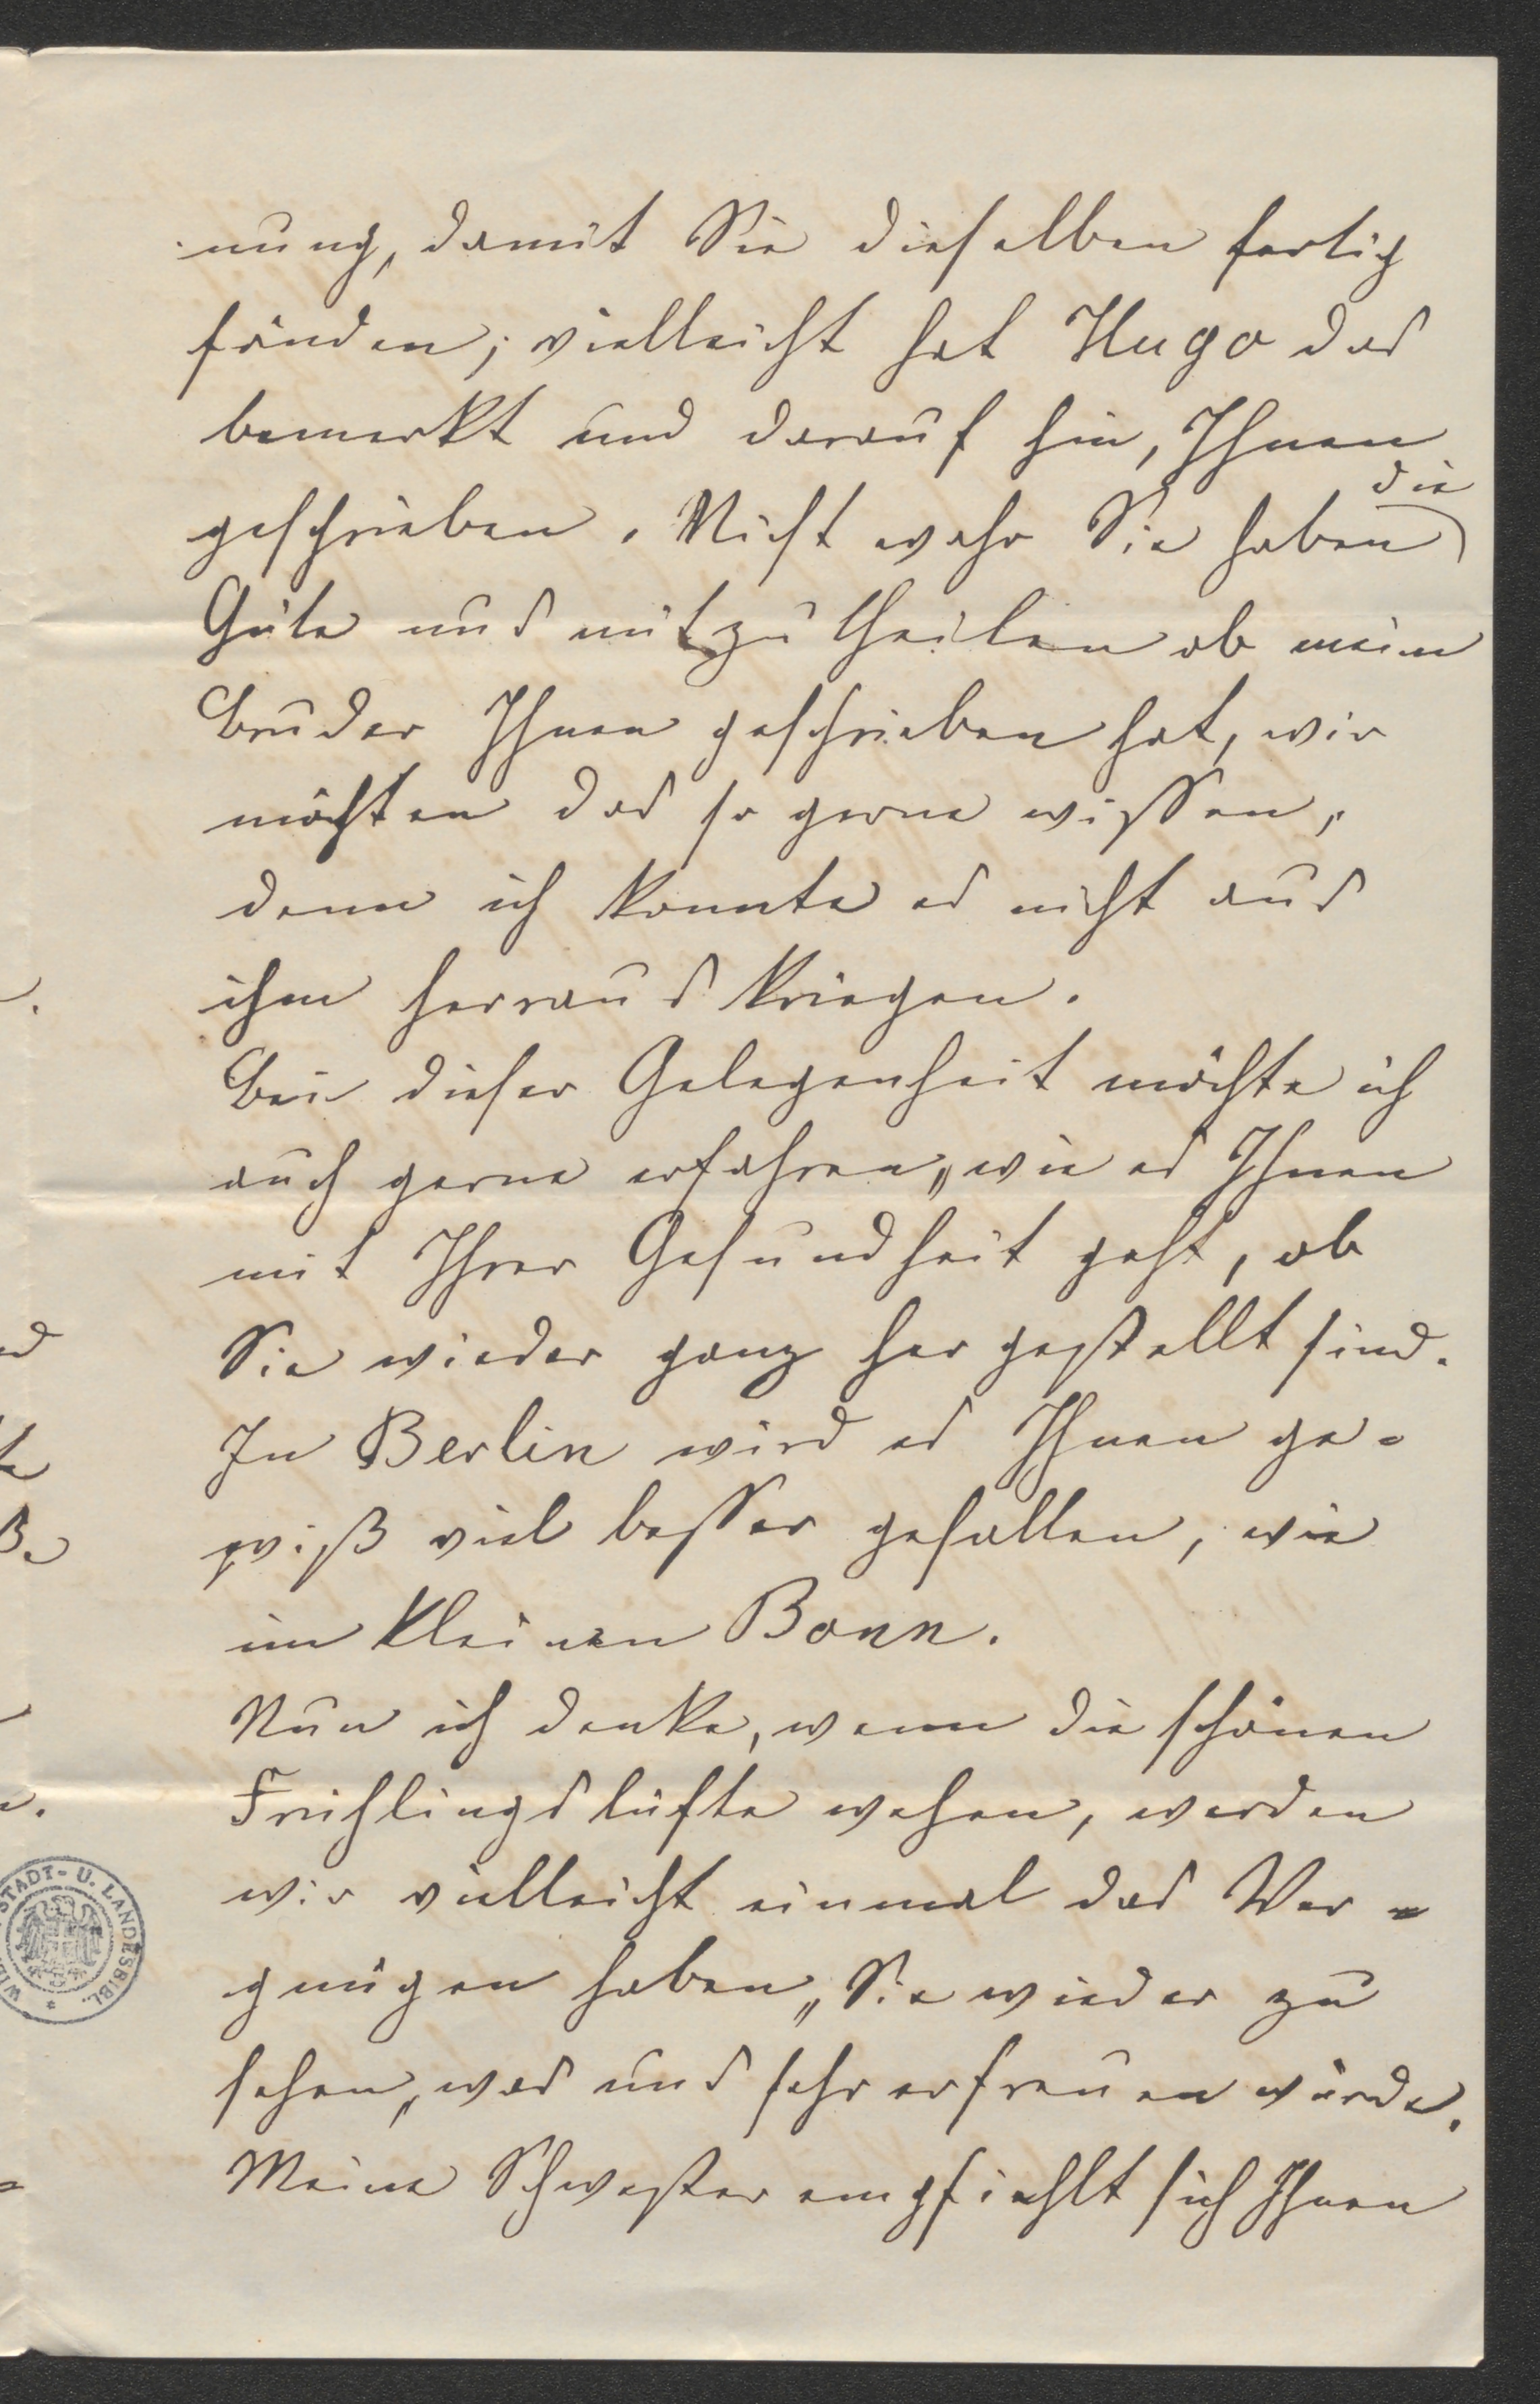 nung, damit Sie dieselben fertig
fänden; vielleicht hat Hugo das
bemerkt und darauf hin, Ihnen
geschrieben. Nicht wahr Sie haben die
Güte uns mitzutheilen ob mein
Bruder Ihnen geschrieben hat, wir
möchten das so gerne wissen,
denn ich konnte es nicht aus
ihm herraus kriegen.
Bei dieser Gelegenheit möchte ich
auch gerne erfahren, wie es Ihnen
mit Ihrer Gesundheit geht, ob
Sie wieder ganz her gestellt sind.
In Berlin wird es Ihnen ge-
wiß viel besser gefallen, wie
im kleinen Bonn.
Nun ich denke, wenn die schönen
Frühlingslüfte wehen, werden
wir vielleicht einmal das Ver-
gnügen haben, Sie wieder zu
sehen, was uns sehr erfreuen würde.
Meine Schwester empfiehlt sich Ihnen
STADT- U. LANDESBIBL.